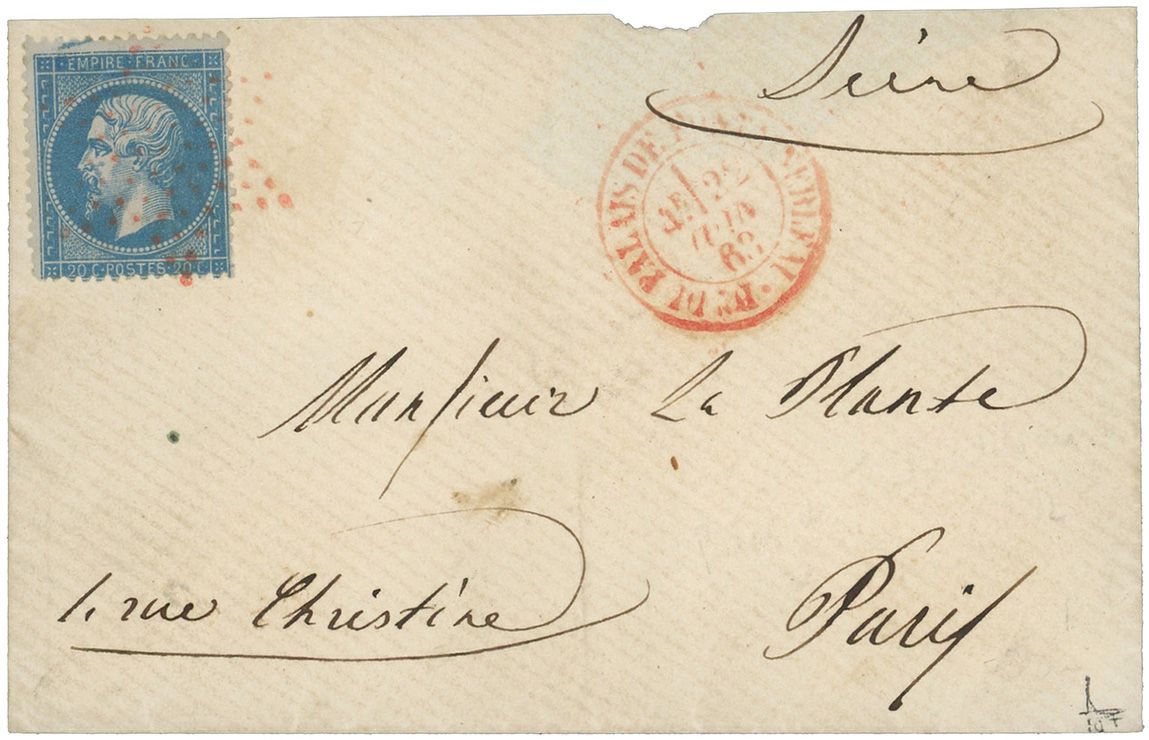 EMPIRE FRANC
20 C POSTES 20 C
Seine
Bu DU PALAIS DE
4E
JUIN
63
Monsieur La Plante
1. rue Christine
Paris